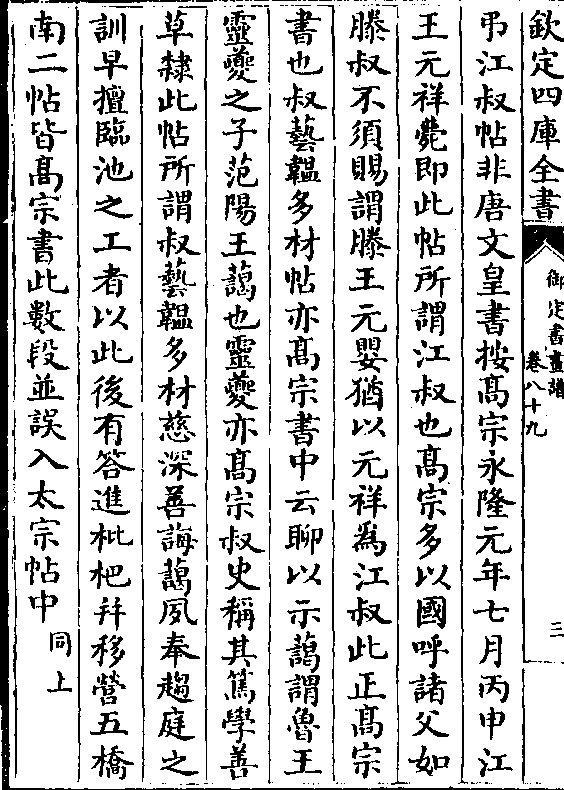 欽定四庫全書
御定書畫譜
卷八十九
三
弔江叔帖非唐文皇書按髙宗永隆元年七月丙申江
王元祥薨即此帖所謂江叔也髙宗多以國呼諸父如
滕叔不須賜謂滕王元嬰猶以元祥為江叔此正髙宗
書也叔藝韞多材帖亦髙宗書中云聊以示藹謂魯王
靈夔之子范陽王藹也靈夔亦髙宗叔史稱其篤學善
草隸此帖所謂叔藝韞多材慈深善誨藹夙奉趨庭之
訓早擅臨池之工者以此後有答進枇杷并移營五橋
南二帖皆髙宗書此數段並誤入太宗帖中同上